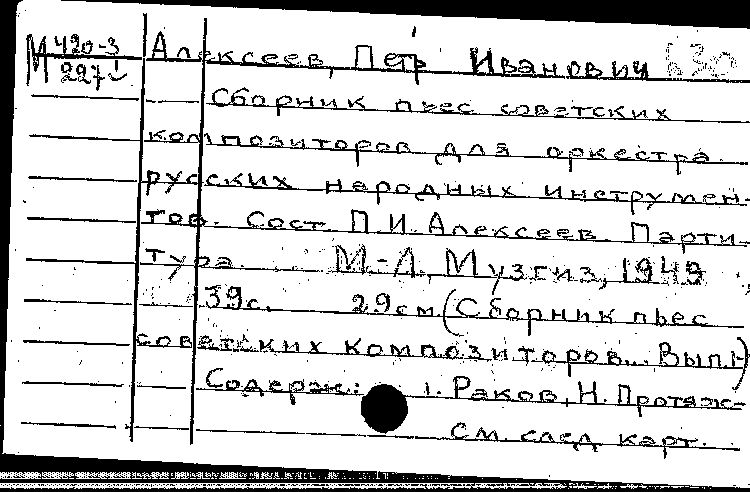 М 420-3 Алексеев, Петр Иванович 630
227
Сборник пьес советских
композиторов для оркестра
русских народных инструмен-
тов. Сост. П.И. Алексеев. Парти-
тура. М.-Л., Музгиз, 1949
39с. 29см (Сборник пьес
советских композиторов... Вып.1)
Содерж.: 1. Раков, Н. Протяж-
См. след карт.